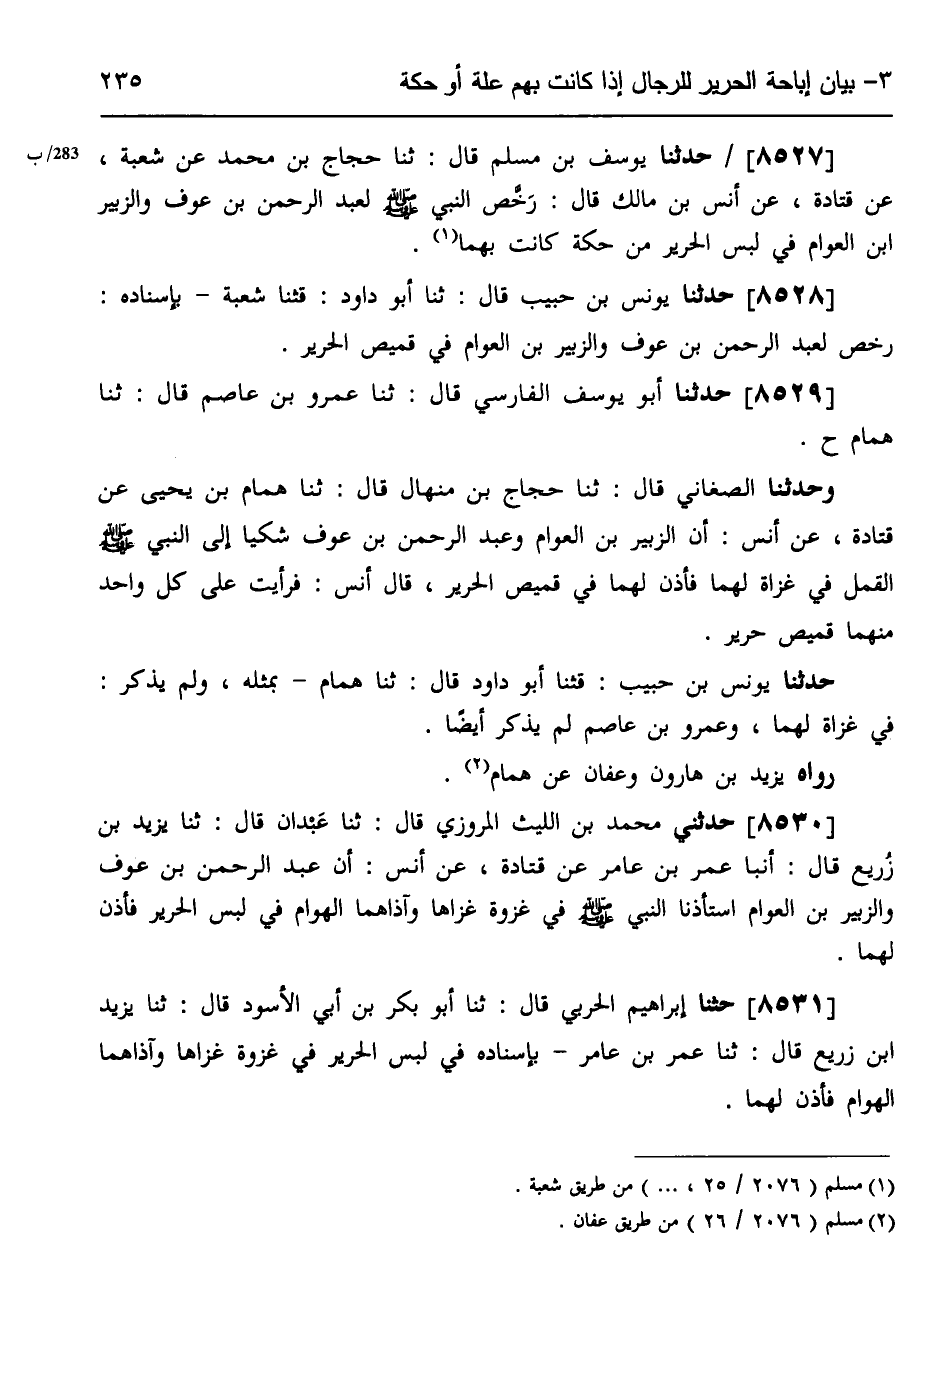 ٣- بيان إباحة الحرير للرجال إذا كانت بهم علة أو حكة ٢٣٥
[٨٥٢٧] / حدثنا يوسف بن مسلم قال : ثنا حجاج بن محمد عن شعبة ، 283/ب
عن قتادة ، عن أنس بن مالك قال : رَخَّص النبي ﷺ لعبد الرحمن بن عوف والزبير
ابن العوام في لبس الحرير من حكة كانت بهما(١) .
[٨٥٢٨] حدثنا يونس بن حبيب قال : ثنا أبو داود : قثنا شعبة – بإسناده :
رخص لعبد الرحمن بن عوف والزبير بن العوام في قميص الحرير .
[٨٥٢٩] حدثنا أبو يوسف الفارسي قال : ثنا عمرو بن عاصم قال : ثنا
همام ح .
وحدثنا الصغاني قال : ثنا حجاج بن منهال قال : ثنا همام بن يحيى عن
قتادة ، عن أنس : أن الزبير بن العوام وعبد الرحمن بن عوف شكيا إلى النبي ﷺ
القمل في غزاة لهما فأذن لهما في قميص الحرير ، قال أنس : فرأيت على كل واحد
منهما قميص حرير .
حدثنا يونس بن حبيب : قثنا أبو داود قال : ثنا همام – بمثله ، ولم يذكر :
في غزاة لهما ، وعمرو بن عاصم لم يذكر أيضًا .
رواه يزيد بن هارون وعفان عن همام(٢) .
[٨٥٣٠] حدثني محمد بن الليث المروزي قال : ثنا عَبْدان قال : ثنا يزيد بن
زُريع قال : أنبا عمر بن عامر عن قتادة ، عن أنس : أن عبد الرحمن بن عوف
والزبير بن العوام استأذنا النبي ﷺ في غزوة غزاها وآذاهما الهوام في لبس الحرير فأذن
لهما .
[٨٥٣١] حثنا إبراهيم الحربي قال : ثنا أبو بكر بن أبي الأسود قال : ثنا يزيد
ابن زريع قال : ثنا عمر بن عامر – بإسناده في لبس الحرير في غزوة غزاها وآذاهما
الهوام فأذن لهما .
(١) مسلم ( ٢٠٧٦ / ٢٥ ، ... ) من طريق شعبة .
(٢) مسلم ( ٢٠٧٦ / ٢٦ ) من طريق عفان .